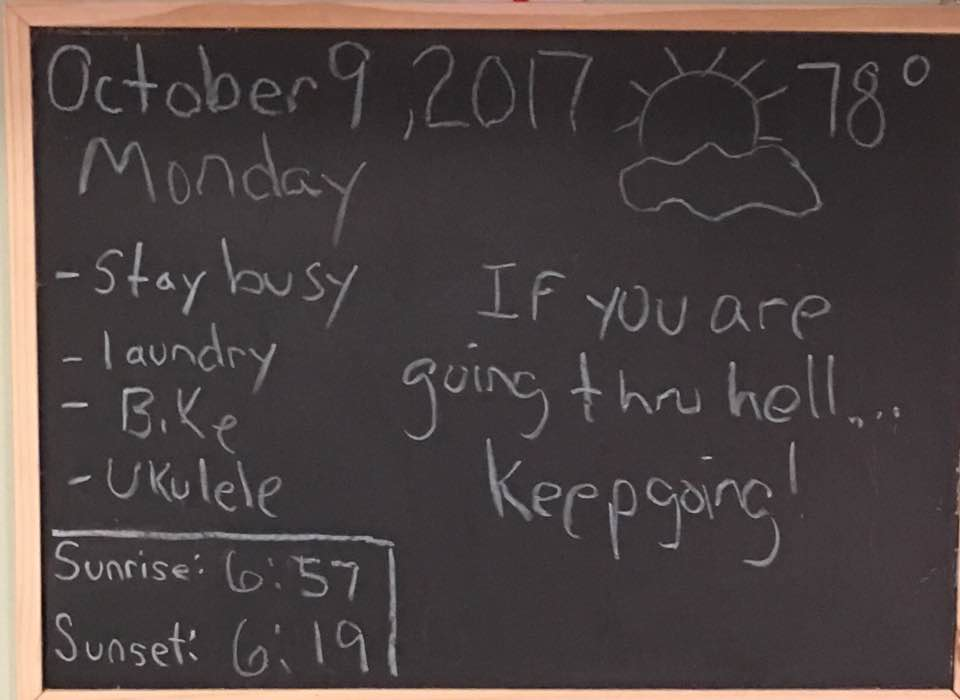 October 9, 2017 78°
Monday
- Stay busy
- laundry
- Bike
- Ukulele
If you are
going thru hell....
Keep going!
Sunrise: 6:57
Sunset: 6:19